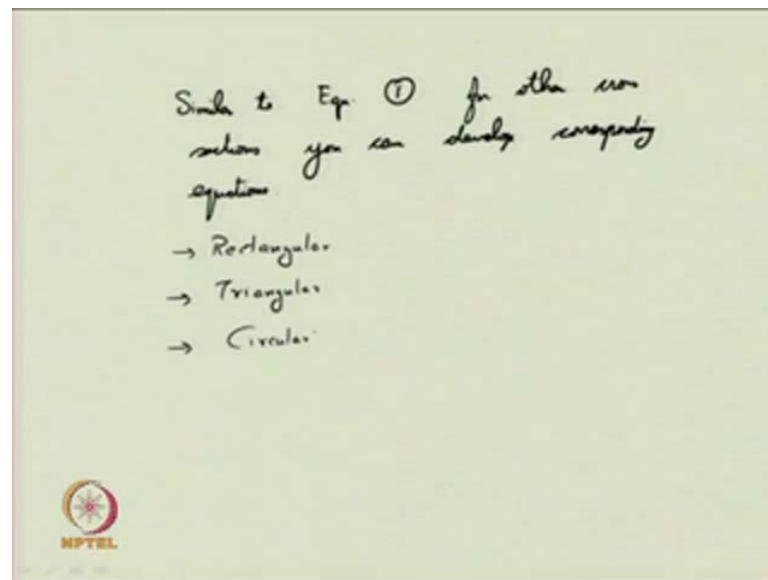 Similar to Eqn. ① for other cross
sections you can develop corresponding
equations.
→ Rectangular
→ Triangular
→ Circular
NPTEL